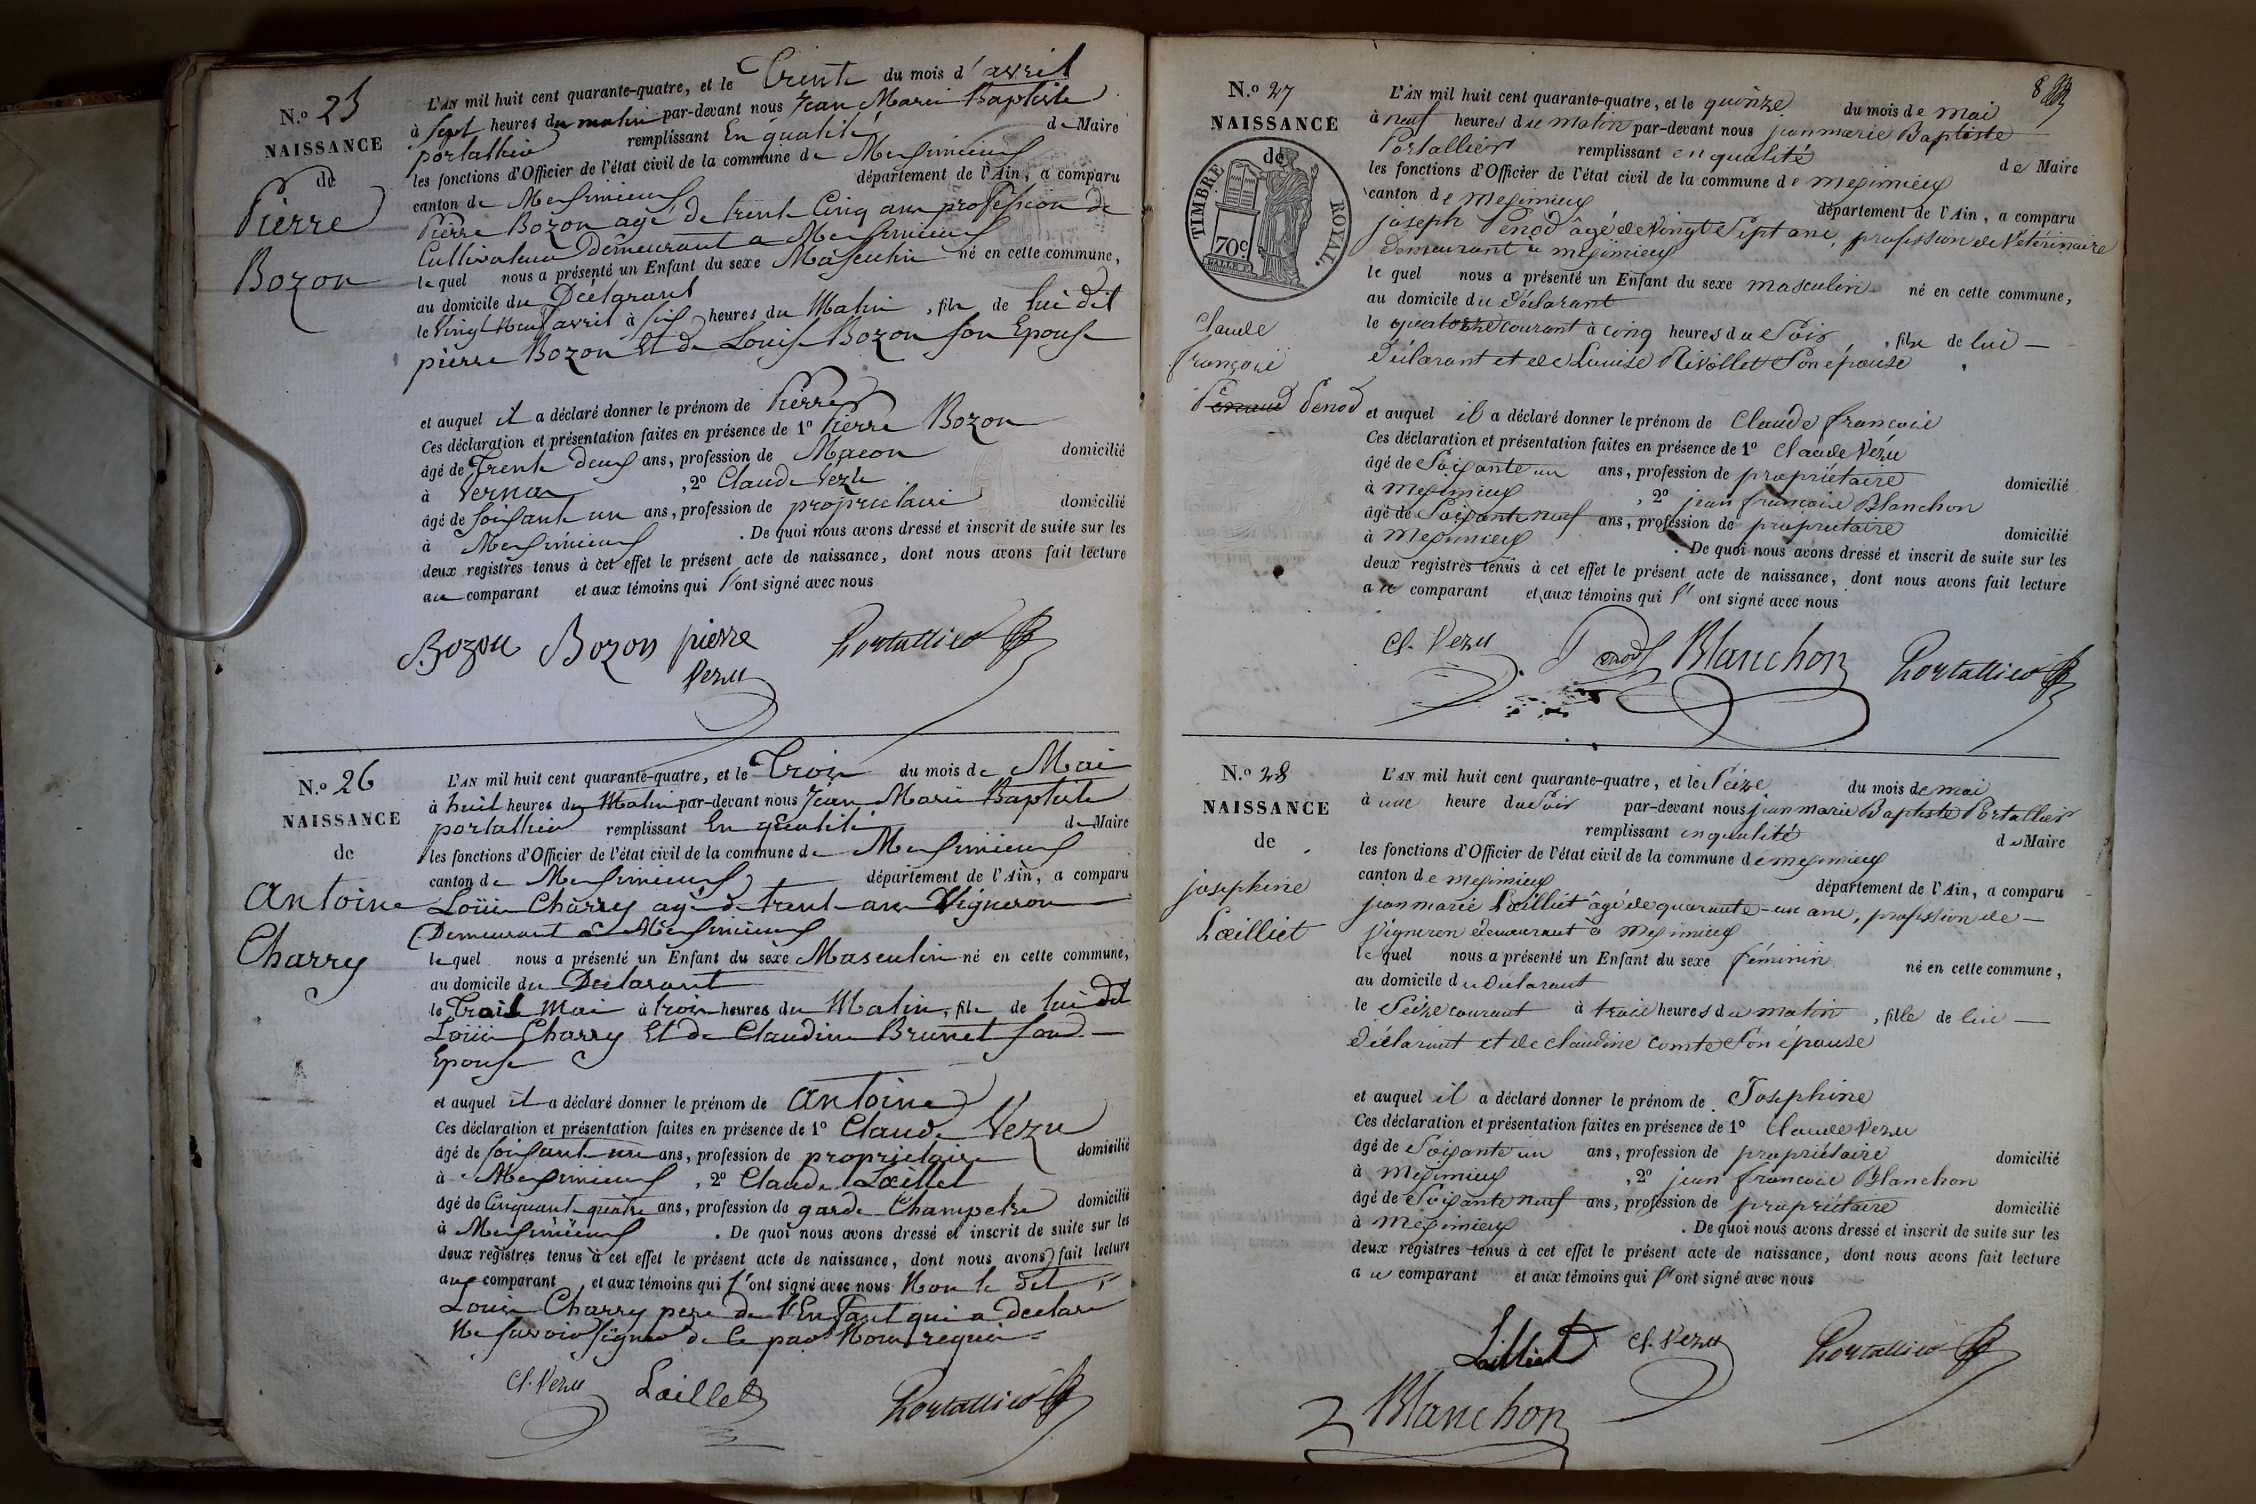 N.º 25
NAISSANCE
de
Pierre
Bozon
L'AN mil huit cent quarante-quatre, et le Trente du mois d'avril
à sept heures du matin par-devant nous Jean Marie Baptiste
portallier remplissant En qualité de Maire
les fonctions d'Officier de l'état civil de la commune de Meximieux
canton de Meximieux département de l'Ain, a comparu
Pierre Bozon agé de trente Cinq ans profession de
Cultivateur Demeurant a Meximieux
le quel nous a présenté un Enfant du sexe Masculin né en cette commune,
au domicile du Déclarant
le Vingt Neuf avril à six heures du Matin, fils de lui dit
pierre Bozon Et de Louise Bozon son Epouse
et auquel il a déclaré donner le prénom de Pierre
Ces déclaration et présentation faites en présence de 1º Pierre Bozon
âgé de Trente deux ans, profession de Macon domicilié
à Vernas, 2º Claude Vezu
âgé de soixante un ans, profession de propriétaire domicilié
à Meximieux. De quoi nous avons dressé et inscrit de suite sur les
deux registres tenus à cet effet le présent acte de naissance, dont nous avons fait lecture
au comparant et aux témoins qui l'ont signé avec nous
Bozon Bozon pierre Portallier
Vezu
N.º 26
NAISSANCE
de
Antoine
Charry
L'AN mil huit cent quarante-quatre, et le Trois du mois de Mai
à huit heures du Matin par-devant nous Jean Marie Baptiste
portallier remplissant En qualité de Maire
les fonctions d'Officier de l'état civil de la commune de Meximieux
canton de Meximieux département de l'Ain, a comparu
Louis Charry agé de trente ans Vigneron
Demeurant à Meximieux
le quel nous a présenté un Enfant du sexe Masculin né en cette commune,
au domicile du Déclarant
le Trois Mai à trois heures du Matin, fils de lui dit
Louis Charry Et de Claudine Brunet son
Epouse
et auquel il a déclaré donner le prénom de Antoine
Ces déclaration et présentation faites en présence de 1º Claude Vezu
âgé de soixante un ans, profession de propriétaire domicilié
à Meximieux, 2º Claude Lœillet
âgé de Cinquante quatre ans, profession de garde Champetre domicilié
à Meximieux. De quoi nous avons dressé et inscrit de suite sur les
deux registres tenus à cet effet le présent acte de naissance, dont nous avons fait lecture
aux comparant et aux témoins qui l'ont signé avec nous Non le dit
Louis Charry pere de l'Enfant qui a declaré
Ne savoir signer de ce par Nous requis
Cl. Vezu Lœillet Portallier
8
N.º 27
NAISSANCE
de
TIMBRE ROYAL.
70c.
Claude
françois
Penod
L'AN mil huit cent quarante-quatre, et le quinze du mois de mai
à neuf heures du matin par-devant nous jean marie Baptiste
Portallier remplissant en qualité de Maire
les fonctions d'Officier de l'état civil de la commune de meximieux
canton de meximieux département de l'Ain, a comparu
joseph Penod âgé de vingt sept ans, profession de Vétérinaire
demeurant à meximieux
le quel nous a présenté un Enfant du sexe masculin né en cette commune,
au domicile du déclarant
le quatorze courant à cinq heures du soir, fils de lui
déclarant et de Louise Rivollet son épouse
et auquel il a déclaré donner le prénom de Claude françois
Ces déclaration et présentation faites en présence de 1º Claude Vezu
âgé de soixante un ans, profession de propriétaire domicilié
à meximieux, 2º jean françois Blanchon
âgé de soixante neuf ans, profession de propriétaire domicilié
à meximieux. De quoi nous avons dressé et inscrit de suite sur les
deux registres tenus à cet effet le présent acte de naissance, dont nous avons fait lecture
au comparant et aux témoins qui l'ont signé avec nous
Cl. Vezu Penod Blanchon Portallier
N.º 28
NAISSANCE
de
josephine
Lœilliet
L'AN mil huit cent quarante-quatre, et le seize du mois de mai
à une heure du soir par-devant nous jean marie Baptiste Portallier
remplissant en qualité de Maire
les fonctions d'Officier de l'état civil de la commune de meximieux
canton de meximieux département de l'Ain, a comparu
jean marie Lœilliet âgé de quarante-un ans, profession de
vigneron demeurant à meximieux
le quel nous a présenté un Enfant du sexe féminin né en cette commune,
au domicile du déclarant
le seize courant à trois heures du matin, fille de lui
déclarant et de claudine comte son épouse
et auquel il a déclaré donner le prénom de Josephine
Ces déclaration et présentation faites en présence de 1º Claude Vezu
âgé de soixante un ans, profession de propriétaire domicilié
à meximieux, 2º jean francois Blanchon
âgé de soixante neuf ans, profession de propriétaire domicilié
à meximieux. De quoi nous avons dressé et inscrit de suite sur les
deux registres tenus à cet effet le présent acte de naissance, dont nous avons fait lecture
au comparant et aux témoins qui l'ont signé avec nous
Lœilliet Cl. Vezu Portallier
Blanchon